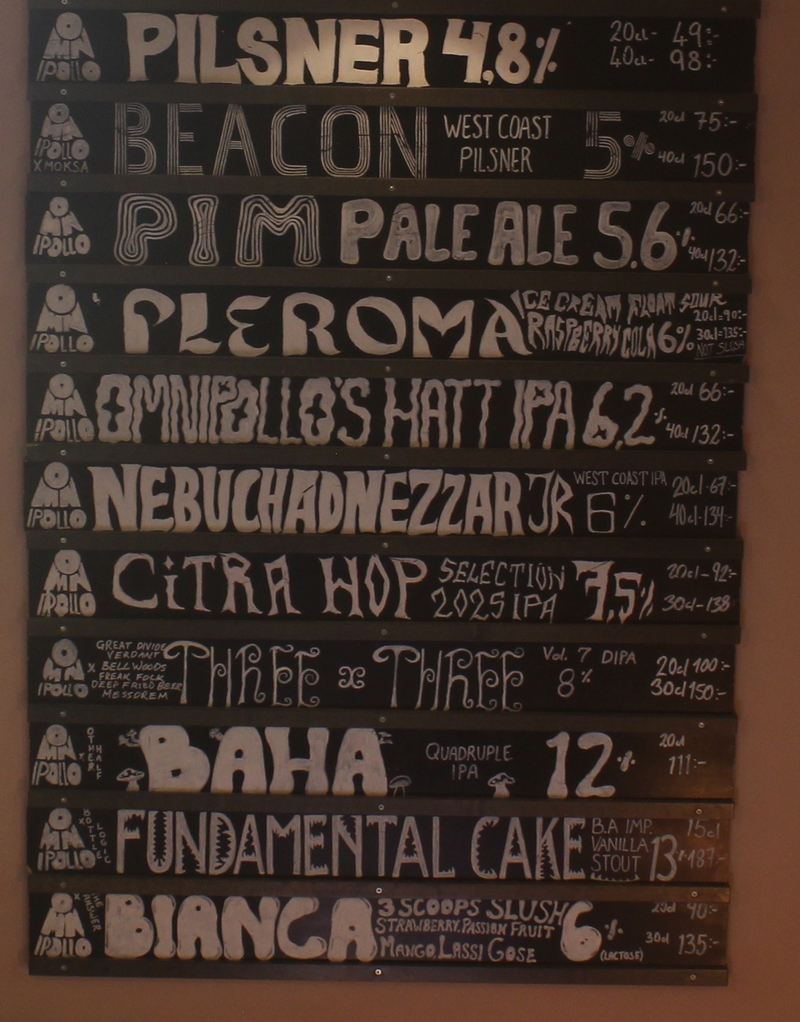 OMNIPOLLO PILSNER 4,8% 20cl- 49:-
40cl- 98:-
OMNIPOLLO X MOKSA BEACON WEST COAST PILSNER 5% 20cl 75:-
40cl 150:-
OMNIPOLLO PIM PALE ALE 5.6% 20cl 66:-
40cl 132:-
OMNIPOLLO PLEROMA ICE CREAM FLOAT SOUR 20cl=90:-
RASPBERRY COLA 6% 30cl=135:-
NOT SLUSH
OMNIPOLLO OMNIPOLLO'S HATT IPA 6,2% 20cl 66:-
40cl 132:-
OMNIPOLLO NEBUCHADNEZZAR JR WEST COAST IPA 6% 20cl-67:-
40cl-134:-
OMNIPOLLO CiTRA HOP SELECTION 7,5% 20cl-92:-
2025 IPA 30cl-138
OMNIPOLLO X GREAT DIVIDE
VERDANT
BELLWOODS
FREAK FOLK
DEEP FRIED BEER
MESSOREM
THREE x THREE Vol. 7 DIPA 20cl 100:-
8% 30cl 150:-
OMNIPOLLO X OTHER HALF BAHA QUADRUPLE IPA 12% 20cl
111:-
OMNIPOLLO X BOTTLE LOGIC FUNDAMENTAL CAKE B.A IMP. 15cl
VANILLA
STOUT 13% 187:-
OMNIPOLLO X THE ANSWER BIANCA 3 SCOOPS SLUSH 6% 20cl 90:-
STRAWBERRY, PASSION FRUIT
MANGO, LASSI GOSE (LACTOSE) 30cl 135:-